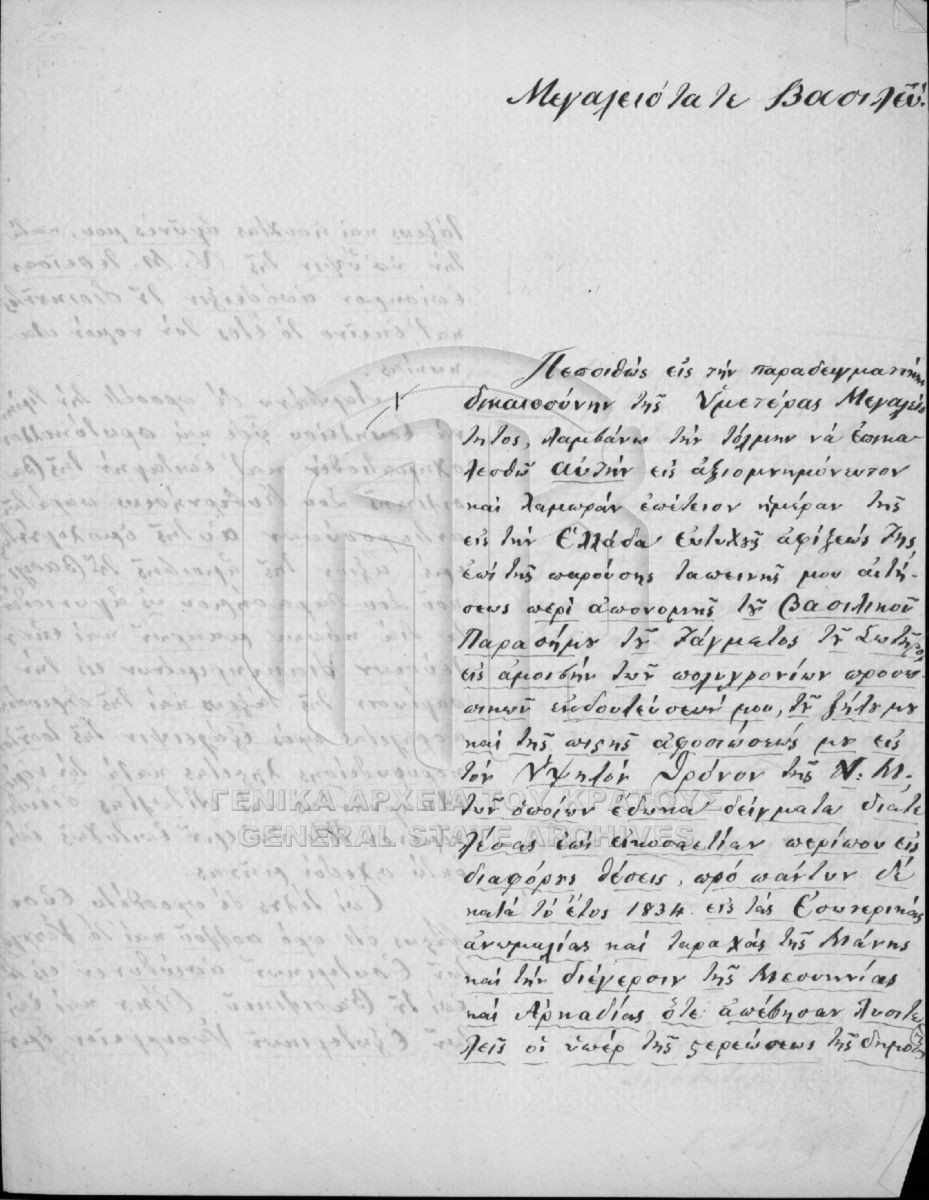 Μεγαλειότατε Βασιλεῦ!
Πεποιθὼς εἰς τὴν παραδειγματικὴν
δικαιοσύνην τῆς Ὑμετέρας Μεγαλειό
τητος, λαμβάνω τὴν τόλμην νὰ ἐπικα
λεσθῶ Αὐτὴν εἰς ἀξιομνημόνευτον
καὶ λαμπρὰν ἐπέτειον ἡμέραν τῆς
εἰς τὴν Ἑλλάδα εὐτυχῆς ἀφίξεώς Της
ἐπὶ τῆς παρούσης ταπεινῆς μου αἰτή-
σεως περὶ ἀπονομῆς τοῦ Βασιλικοῦ
Παρασήμου τοῦ Τάγματος τοῦ Σωτῆρος
εἰς ἀμοιβὴν τῶν πολυχρονίων προσω
πικῶν ἐκδουλεύσεών μου, τοῦ ζήλου μου
καὶ τῆς πιστῆς ἀφοσιώσεώς μου εἰς
τὸν Ὑψηλὸν Θρόνον τῆς Υ. Μ.
τῶν ὁποίων ἔδωκα δείγματα διατε
λέσας ἐπὶ εἰκοσαετίαν περίπου εἰς
διαφόρους θέσεις, πρὸ πάντων δὲ
κατὰ τὸ ἔτος 1834. εἰς τὰς Ἐσωτερικὰς
ἀνωμαλίας καὶ ταραχὰς τῆς Μάνης
καὶ τὴν διέγερσιν τῆς Μεσσηνίας
καὶ Ἀρκαδίας ὅτε ἀπέβησαν λυσιτε
λεῖς οἱ ὑπὲρ τῆς στερεώσεως τῆς δημοσίου
ΓΕΝΙΚΑ ΑΡΧΕΙΑ ΤΟΥ ΚΡΑΤΟΥΣ
GENERAL STATE ARCHIVES